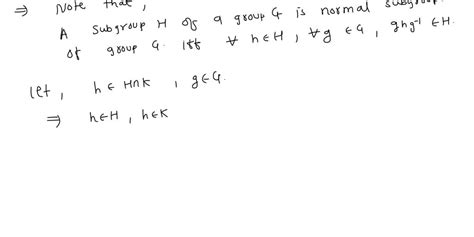 ⇒ Note that,
A subgroup H of a group G is normal subgroup
of group G. iff ∀ h∈H, ∀g ∈G, ghg⁻¹ ∈H.
let, h∈ H∩K , g∈G.
⇒ h∈H, h∈K